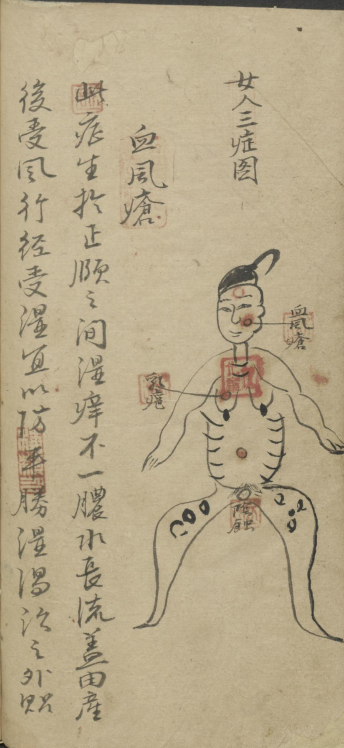 女人三症图
血风瘡
乳疮
血风瘡
此症生於正顔之间湿痒不一膿水長流盖因産
後受风行经受湿宜以防風勝湿湯治之外貼